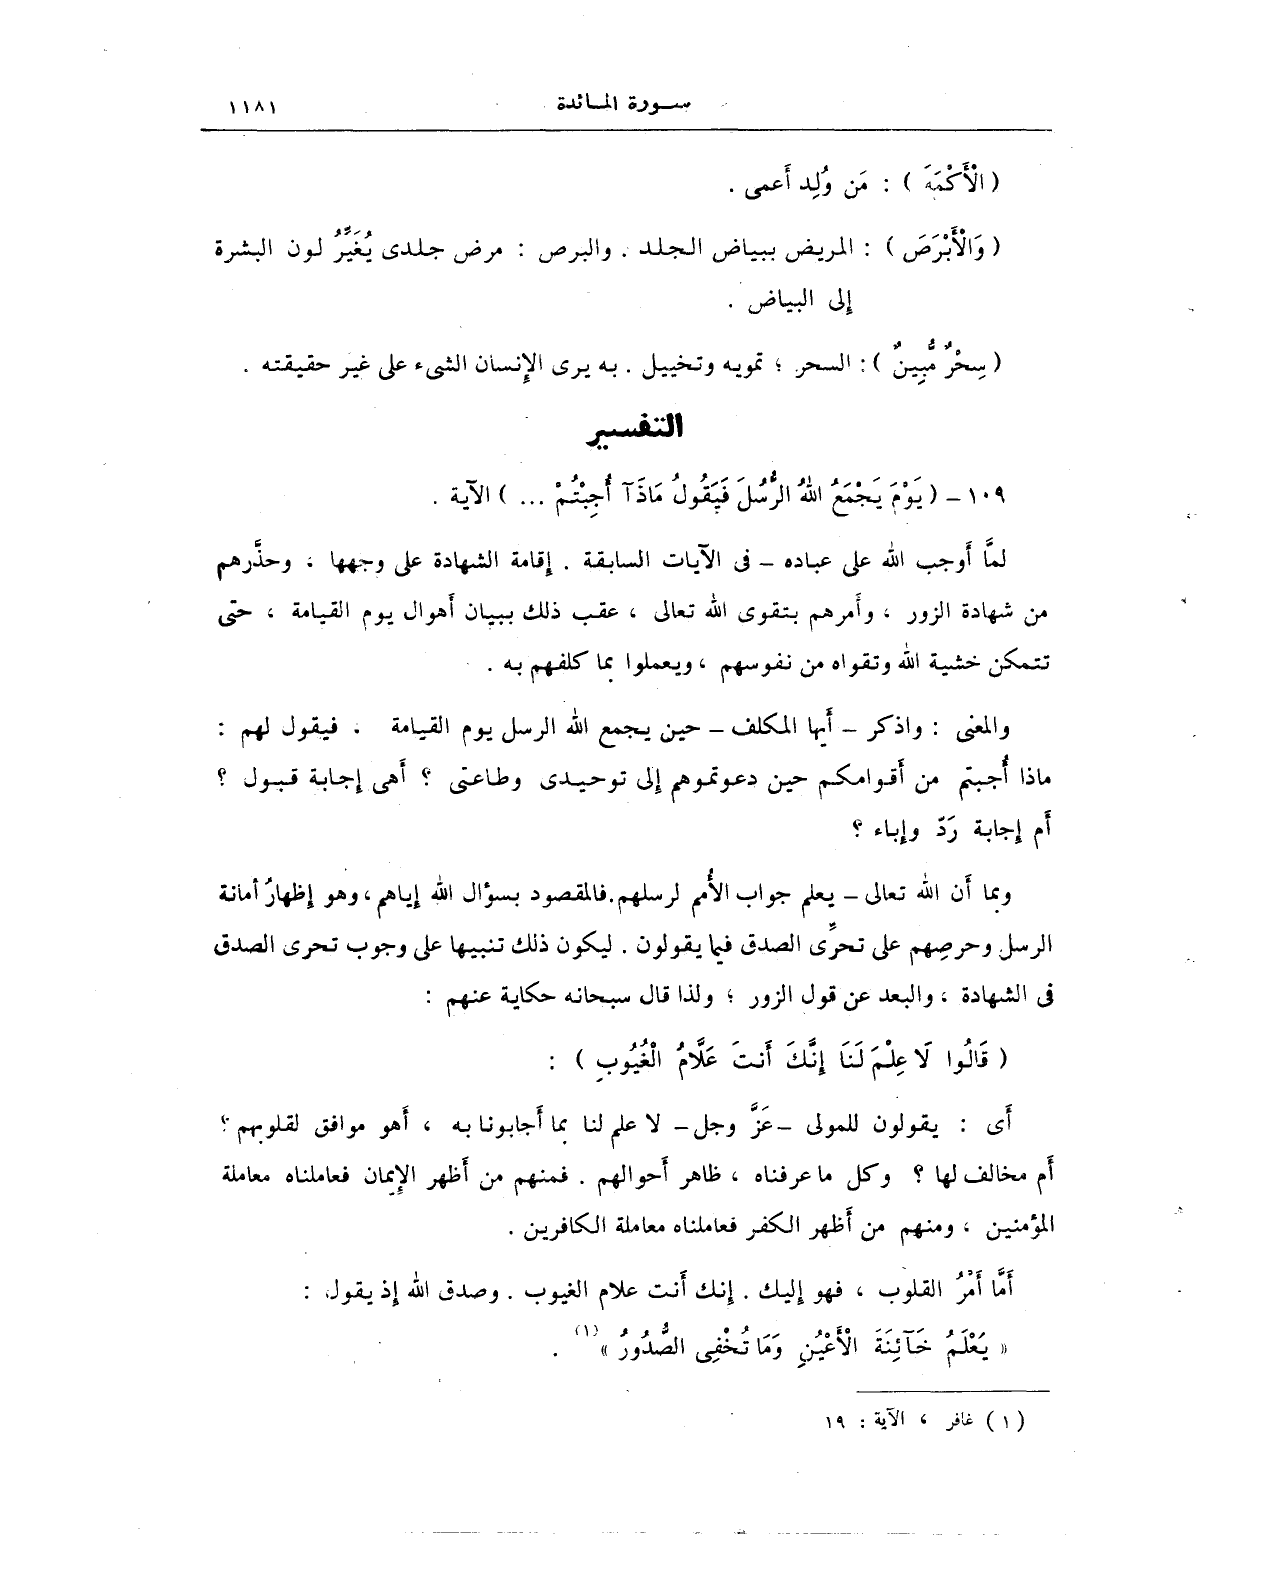 سورة المائدة ١١٨١
( الْأَكْمَهَ ) : مَن وُلِد أَعمى .
( وَالْأَبْرَصَ ) : المريض ببياض الجلد . والبرص : مرض جلدى يُغَيِّرُ لون البشرة
إلى البياض .
( سِحْرٌ مُّبِينٌ ) : السحر ؛ تمويه وتخييل . به يرى الإنسان الشىء على غير حقيقته .
التفسير
١٠٩ – ( يَوْمَ يَجْمَعُ اللهُ الرُّسُلَ فَيَقُولُ مَاذَآ أُجِبْتُمْ ... ) الآية .
لمَّا أَوجب الله على عباده – فى الآيات السابقة . إقامة الشهادة على وجهها ، وحذَّرهم
من شهادة الزور ، وأَمرهم بتقوى الله تعالى ، عقب ذلك ببيان أَهوال يوم القيامة ، حتى
تتمكن خشية الله وتقواه من نفوسهم ، ويعملوا بما كلفهم به .
والمعنى : واذكر – أَيها المكلف – حين يجمع الله الرسل يوم القيامة . فيقول لهم :
ماذا أُجبتم من أَقوامكم حين دعوتموهم إلى توحيدى وطاعتى ؟ أَهى إجابة قبول ؟
أَم إجابة رَدّ وإباء ؟
وبما أَن الله تعالى – يعلم جواب الأُمم لرسلهم. فالمقصود بسؤال الله إياهم ، وهو إظهارُ أمانة
الرسل وحرصِهم على تحرِّى الصدق فيما يقولون . ليكون ذلك تنبيها على وجوب تحرى الصدق
فى الشهادة ، والبعد عن قول الزور ؛ ولذا قال سبحانه حكاية عنهم :
( قَالُوا لَا عِلْمَ لَنَا إِنَّكَ أَنتَ عَلَّامُ الْغُيُوبِ ) :
أَى : يقولون للمولى –عَزَّ وجل– لا علم لنا بما أَجابونا به ، أَهو موافق لقلوبهم ؟
أَم مخالف لها ؟ وكل ما عرفناه ، ظاهر أَحوالهم . فمنهم من أَظهر الإِيمان فعاملناه معاملة
المؤمنين ، ومنهم من أَظهر الكفر فعاملناه معاملة الكافرين .
أَمَّا أَمْرُ القلوب ، فهو إليك . إنك أَنت علام الغيوب . وصدق الله إذ يقول :
« يَعْلَمُ خَآئِنَةَ الْأَعْيُنِ وَمَا تُخْفِى الصُّدُورُ » (١) .
(١) غافر ، الآية : ١٩